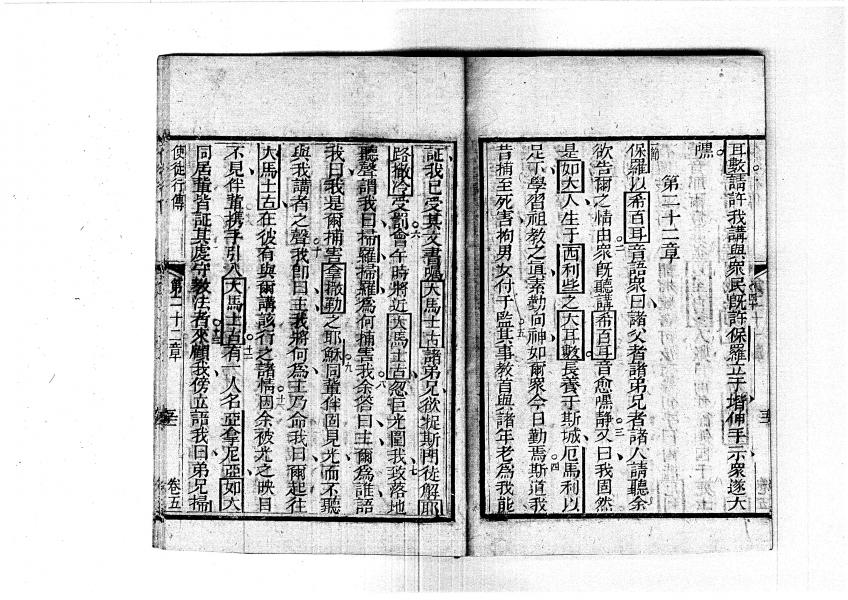 耳數請許我講與衆民既許保羅立于堦伸手示衆遂大
嘿
第二十二章
一節
保羅以希百耳音語衆曰諸父者諸弟兄者諸人請聽余
欲告爾之情由衆既聽講希百耳音愈嘿静又曰我固然
是如大人生于西利些之大耳數長養于斯城厄馬利以
足可學習祖教之真素勤向神如爾衆今日勤焉斯道我
昔捕至死害拘男女付于監其事教首與諸年老爲我能
証我已受其文書與大馬士古諸弟兄欲捉斯門徒解耶
路撒冷受罰會午時將近大馬士古忽巨光圍我致落地
聽聲謂我曰掃羅掃羅爲何捕害我余答曰主爾爲誰語
我曰我是爾捕害拿撒勒之耶穌同輩伴固見光而不聽
與我講者之聲我即曰主我將何爲主乃命我曰爾起往
大馬士古在彼有與爾講該行之諸情因余被光之映目
不見伴輩携手引入大馬士古有一人名亞拿尼亞如大
同居輩皆証其處守教法者來顧我傍立語我曰弟兄掃
使徒行傳
第二十二章
卷五